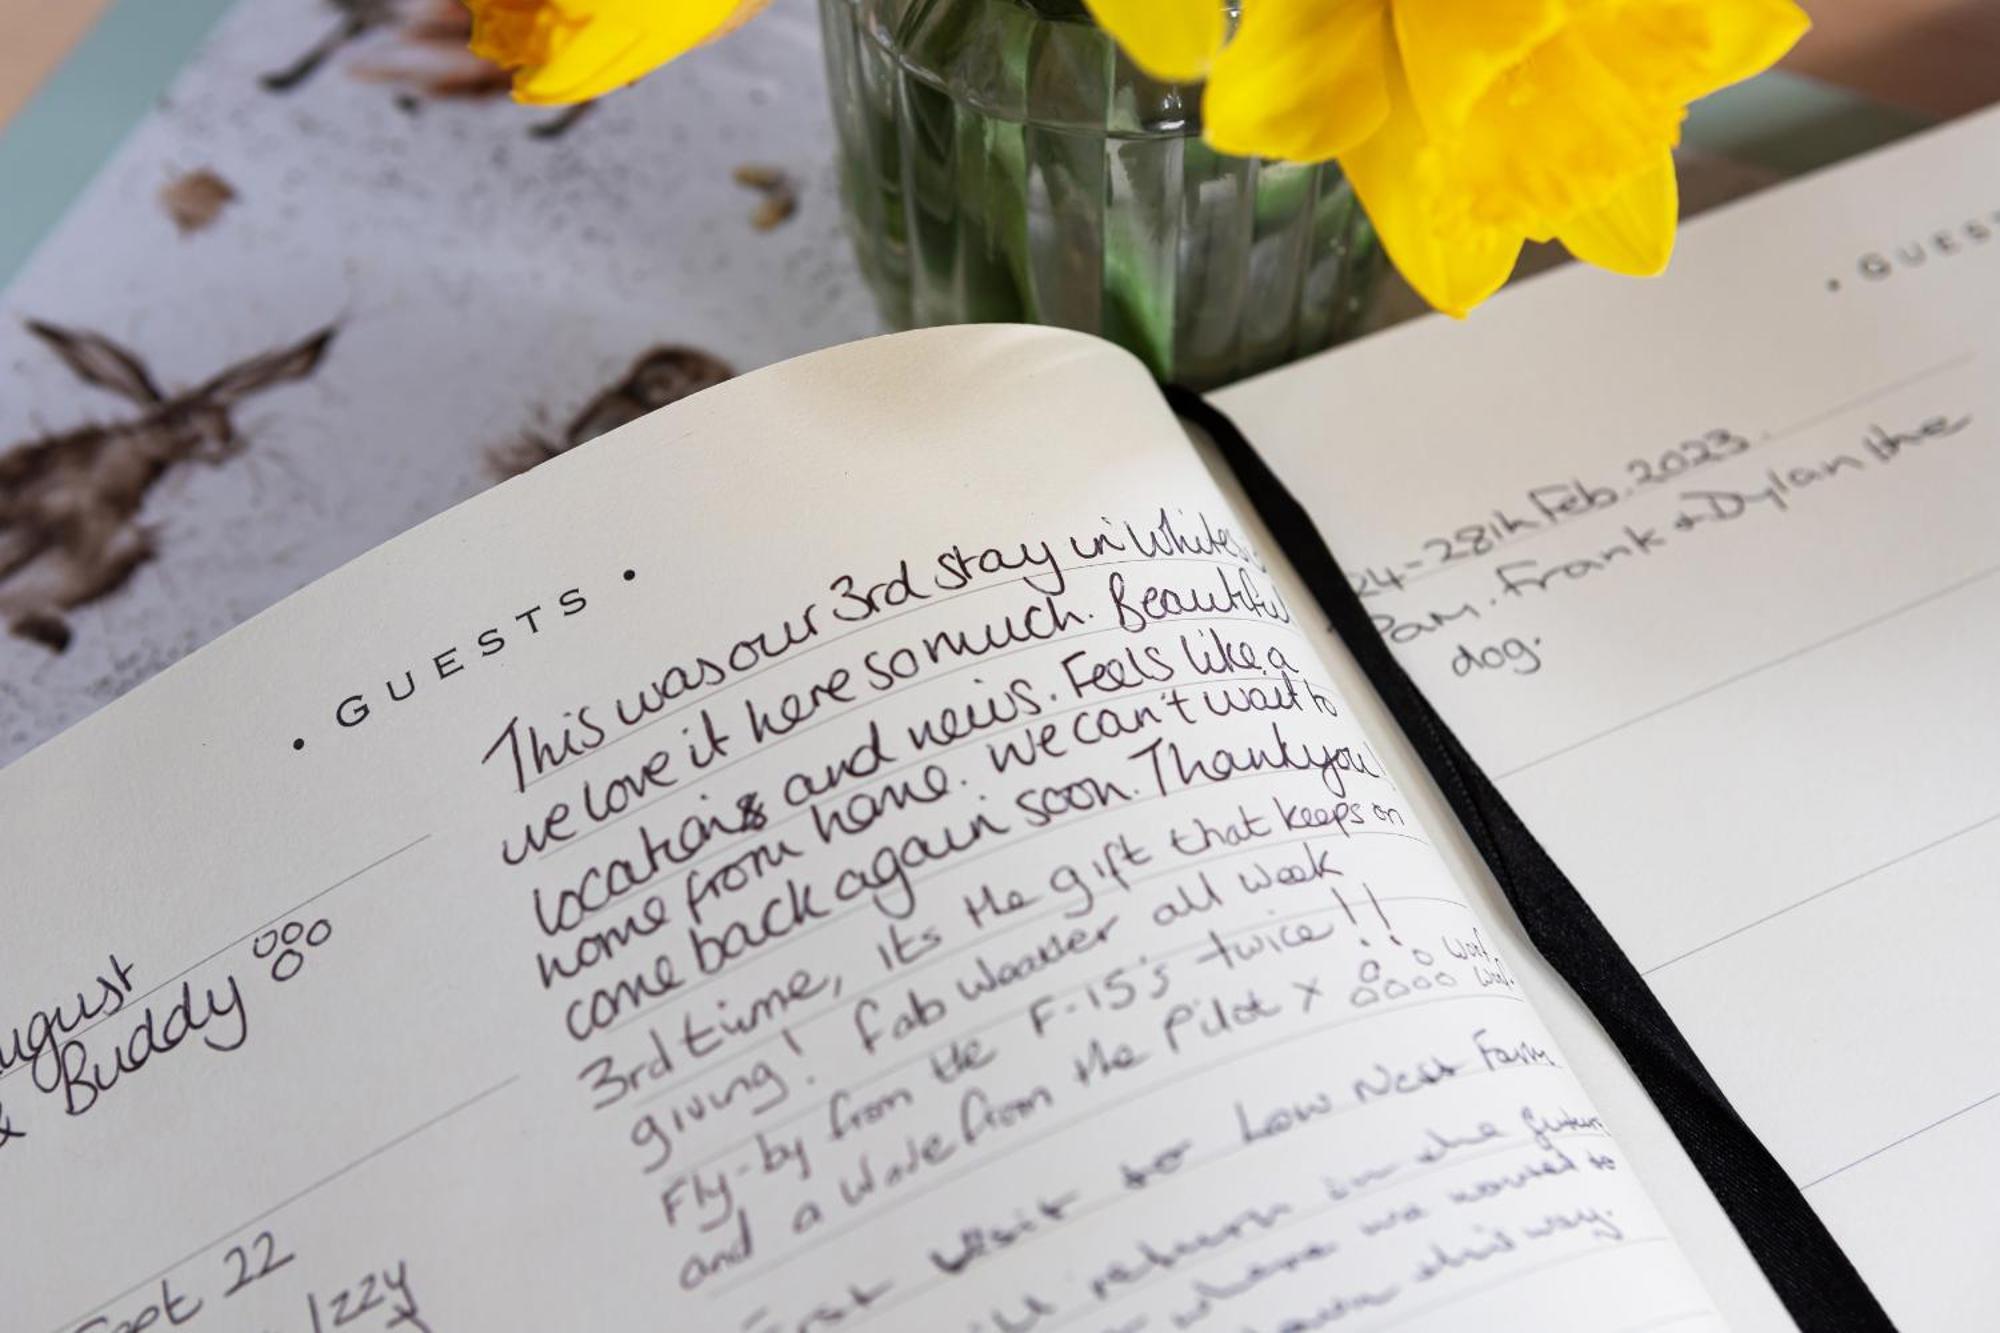 • GUESTS •
This was our 3rd stay in
we love it here so much. Beautiful
locations and views. Feels like a
home from home. We can't wait to
come back again soon. Thankyou!
3rd time, its the gift that keeps on
giving! Fab weather all week
Fly-by from the F-15's twice!!
and a wave from the Pilot x woof
woof
First visit to Low Nest Farm
return in the future
where we wanted to
this way.
August
& Buddy
Sept 22
Izzy
• GUEST
24-28th Feb. 2023.
Pam. Frank & Dylan the
dog.